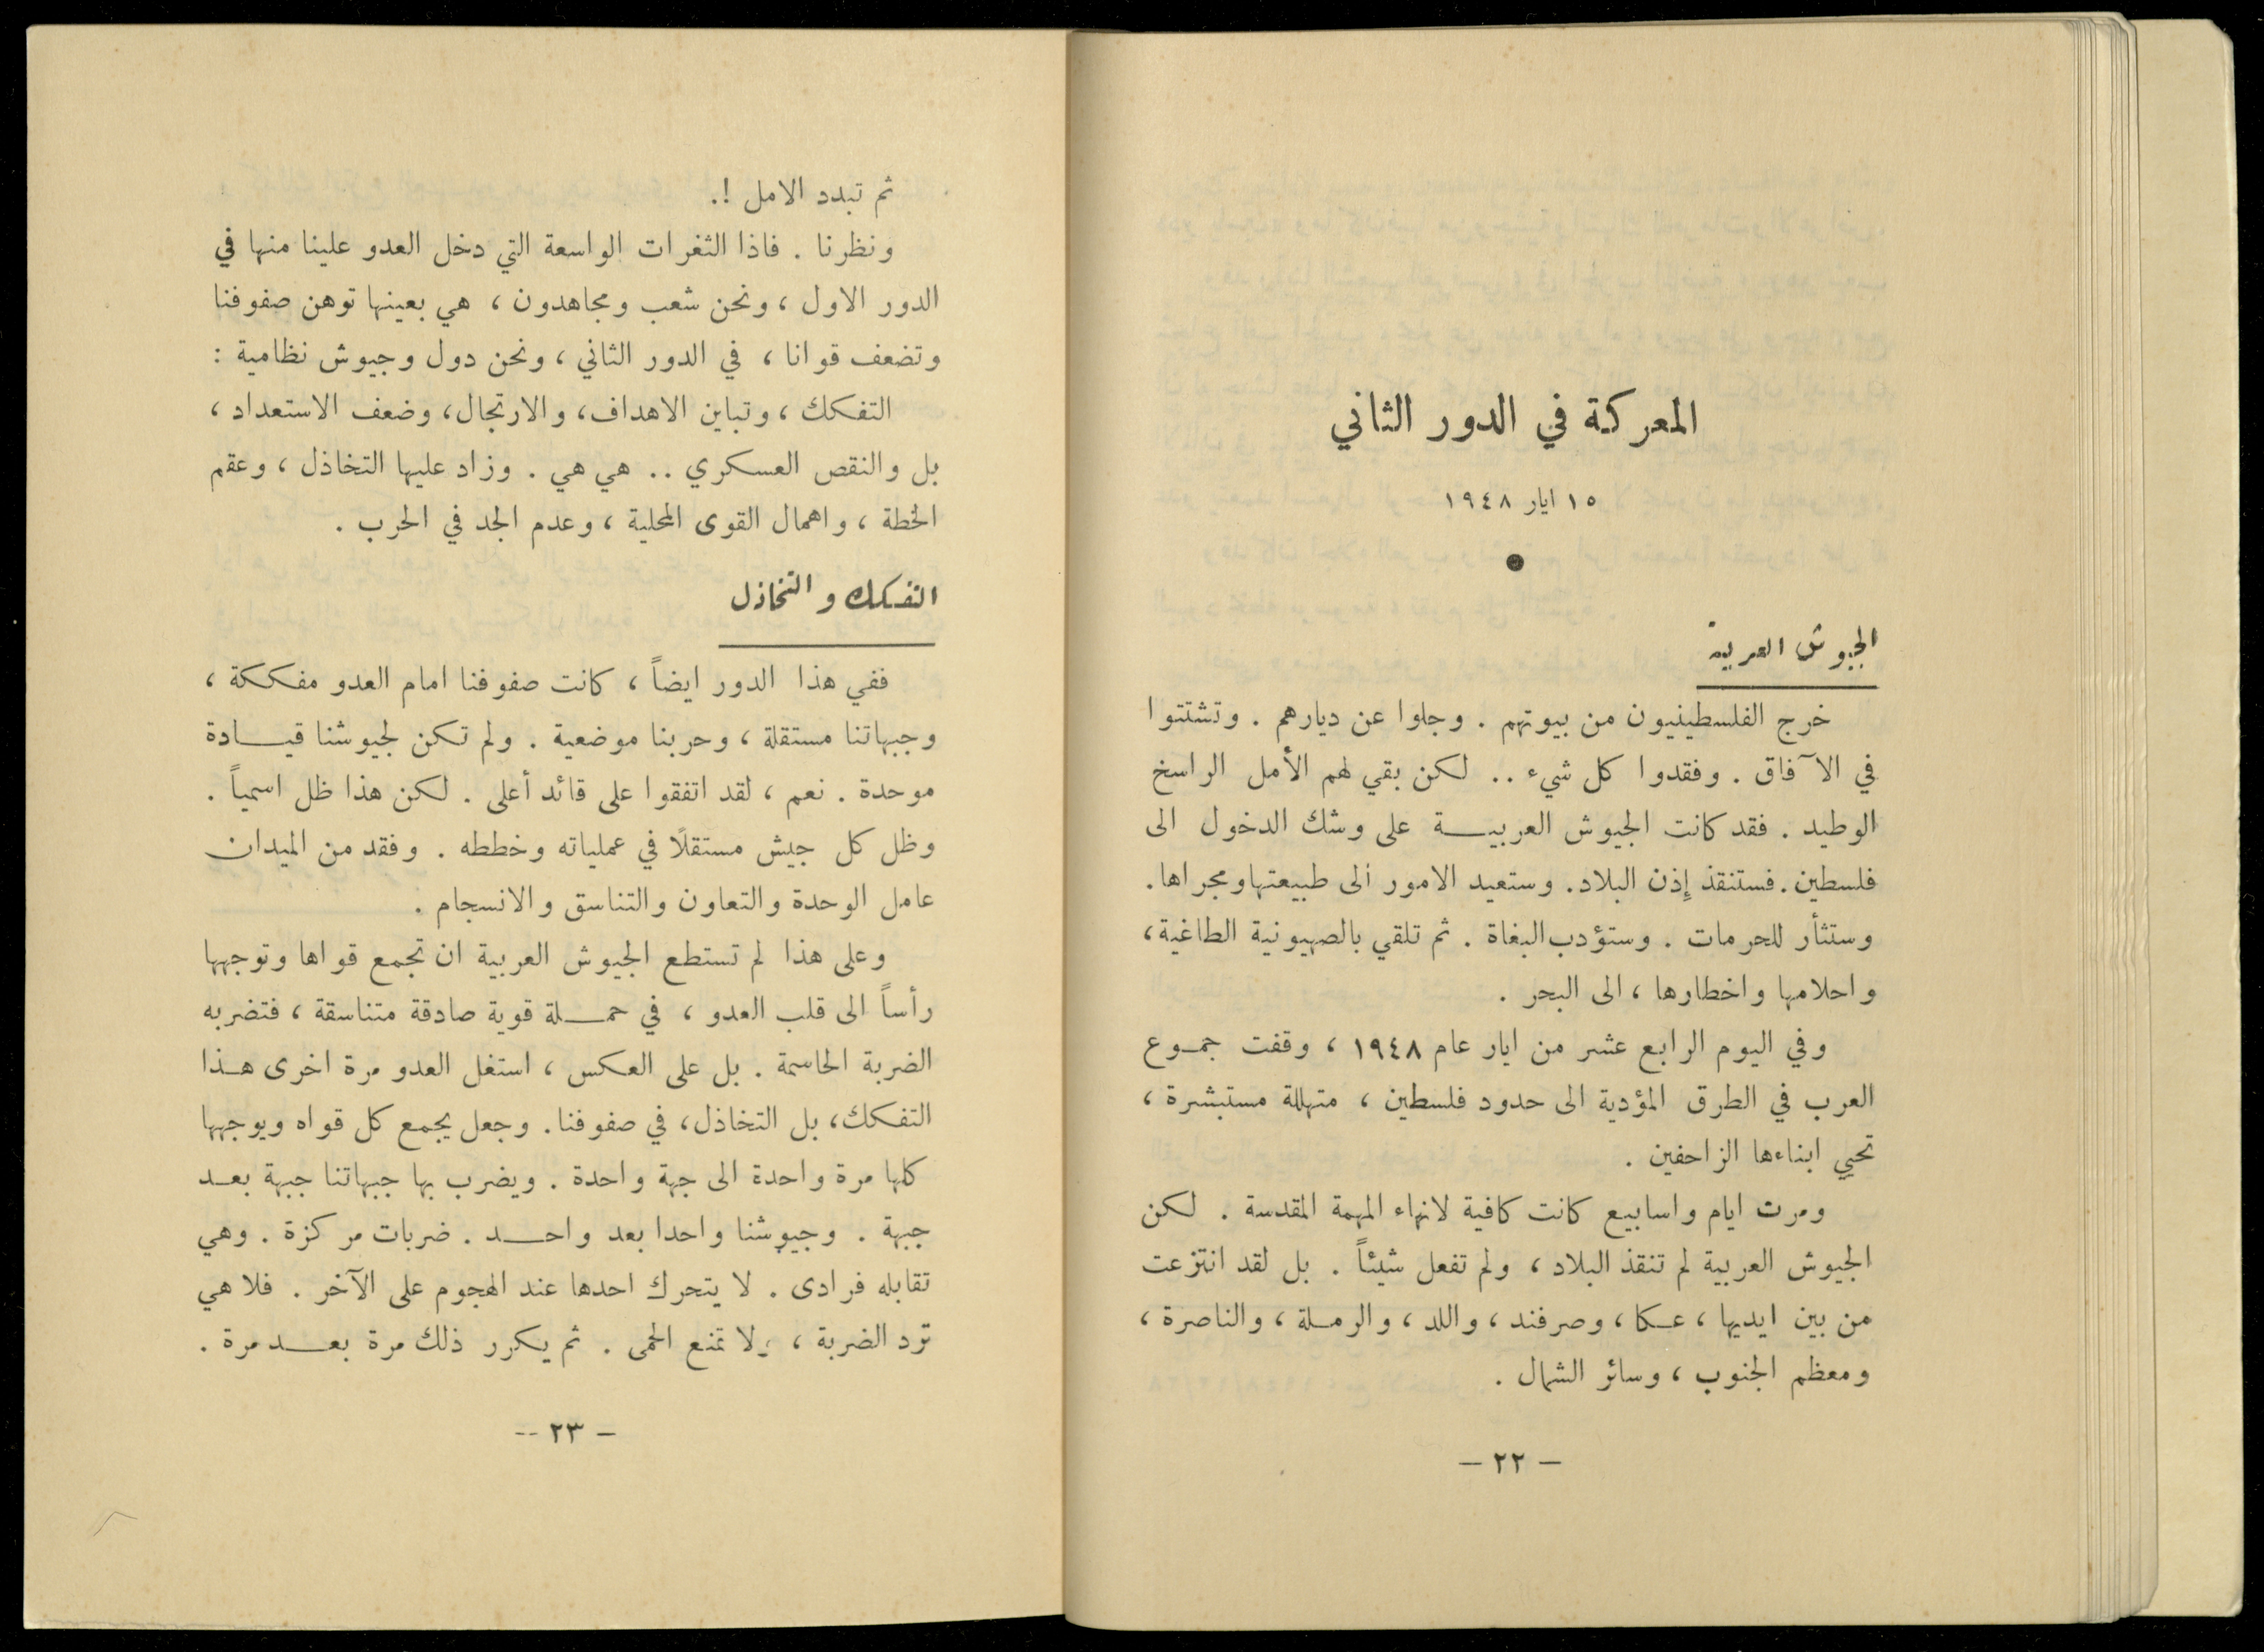 المعركة في الدور الثاني
١٥ ايار ١٩٤٨
الجيوش العربية
خرج الفلسطينيون من بيوتهم . وجلوا عن ديارهم . وتشتتوا
في الآفاق . وفقدوا كل شيء .. لكن بقي لهم الأمل الراسخ
الوطيد . فقد كانت الجيوش العربيـــة على وشك الدخول الى
فلسطين . فستنقذ إذن البلاد . وستعيد الامور الى طبيعتها ومجراها .
وستثأر للحرمات . وستؤدب البغاة . ثم تلقي بالصهيونية الطاغية ،
واحلامها واخطارها ، الى البحر .
وفي اليوم الرابع عشر من ايار عام ١٩٤٨ ، وقفت جمـوع
العرب في الطرق المؤدية الى حدود فلسطين ، متهللة مستبشرة ،
تحيي ابناءها الزاحفين .
ومرت ايام واسابيع كانت كافية لانهاء المهمة المقدسة . لكن
الجيوش العربية لم تنقذ البلاد ، ولم تفعل شيئاً . بل لقد انتزعت
من بين ايديها ، عـكا ، وصرفند ، واللد ، والرمـلة ، والناصرة ،
ومعظم الجنوب ، وسائر الشمال .
– ٢٢ –
ثم تبدد الامل !.
ونظرنا . فاذا الثغرات الواسعة التي دخل العدو علينا منها في
الدور الاول ، ونحن شعب ومجاهدون ، هي بعينها توهن صفوفنا
وتضعف قوانا ، في الدور الثاني ، ونحن دول وجيوش نظامية :
التفكك ، وتباين الاهداف ، والارتجال ، وضعف الاستعداد ،
بل والنقص العسكري .. هي هي . وزاد عليها التخاذل ، وعقم
الخطة ، واهمال القوى المحلية ، وعدم الجد في الحرب .
التفكك والتخاذل
ففي هذا الدور ايضاً ، كانت صفوفنا امام العدو مفككة ،
وجبهاتنا مستقلة ، وحربنا موضعية . ولم تكن لجيوشنا قيـــادة
موحدة . نعم ، لقد اتفقوا على قائد أعلى . لكن هذا ظل اسمياً .
وظل كل جيش مستقلاً في عملياته وخططه . وفقد من الميدان
عامل الوحدة والتعاون والتناسق والانسجام .
وعلى هذا لم تستطع الجيوش العربية ان تجمع قواها وتوجهها
رأساً الى قلب العدو ، في حمـــلة قوية صادقة متناسقة ، فتضربه
الضربة الحاسمة . بل على العكس ، استغل العدو مرة اخرى هـذا
التفكك ، بل التخاذل ، في صفوفنا . وجعل يجمع كل قواه ويوجهها
كلها مرة واحدة الى جهة واحدة . ويضرب بها جبهاتنا جبهة بعـد
جبهة . وجيوشنا واحدا بعد واحـــد . ضربات مركزة . وهي
تقابله فرادى . لا يتحرك احدها عند الهجوم على الآخر . فلا هي
ترد الضربة ، ولا تمنع الحمى . ثم يكرر ذلك مرة بعـــد مرة .
– ٢٣ --